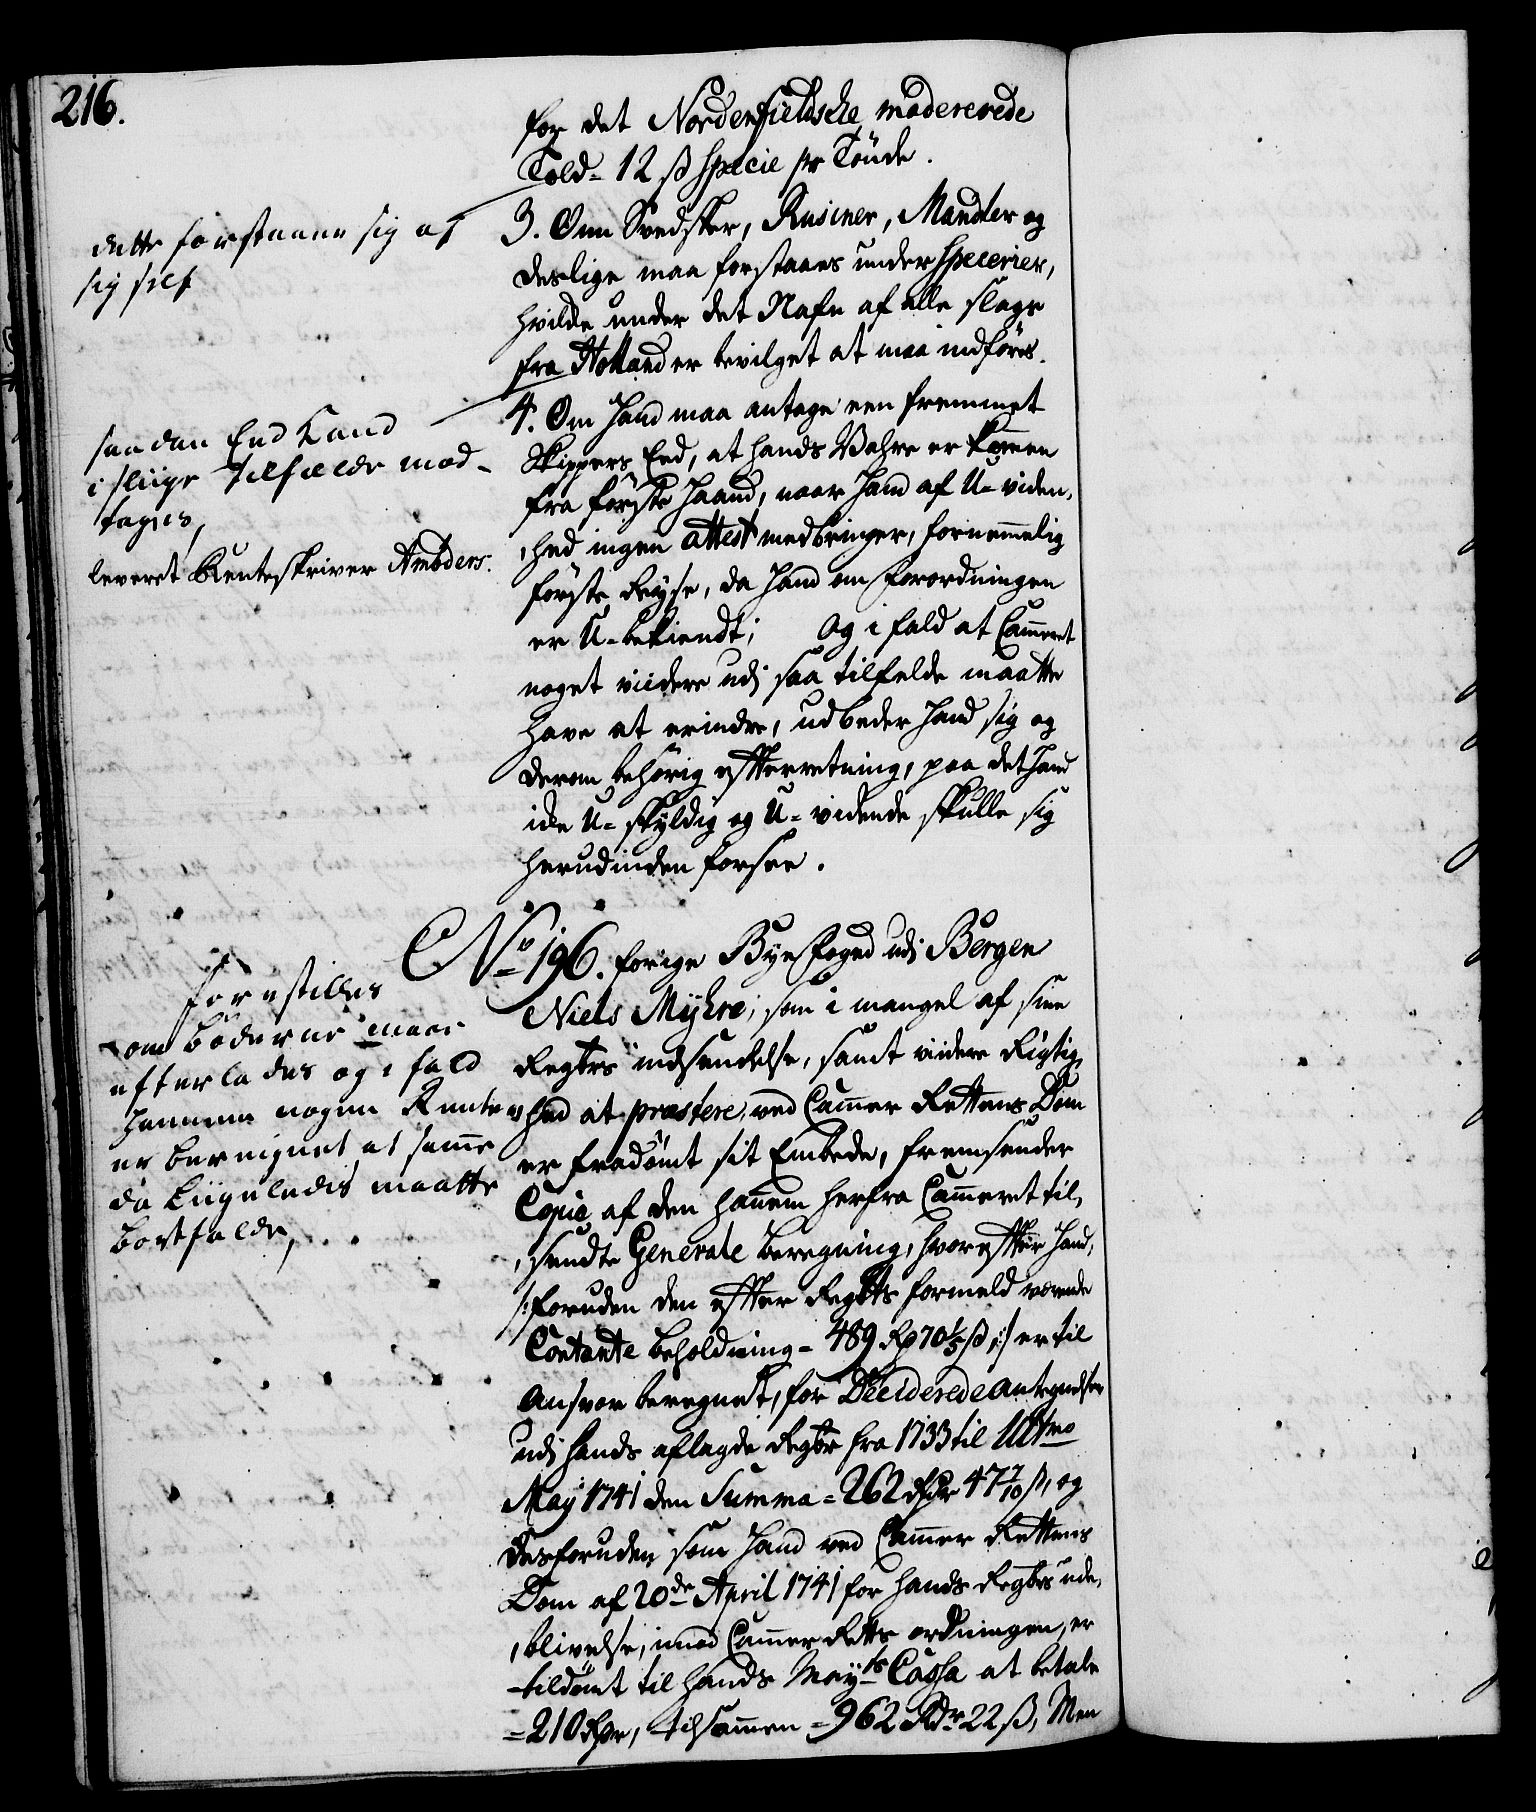 216.
for det Nordenfieldsche modererede
Told - 12 ß Specie pr Tönde.
dette forstaaer sig af
sig self
3. Om Svedsker, Rusiner, Mandler og
deslige maa forstaaes under Specerier,
hvilke under det Nafn af alle slags
fra Holland er bevilget at maa indföres.
saadan Eed kand
i sliige Tilfælde mod-
tages,
leveret Renteskriver Ambders.
4. Om hand maa antage een fremmet
Skippers Eed, at hands Vahre er kommen
fra förste Haand, naar hand af U-viden-
,hed ingen attest medbringer, fornemmelig
förste Reyse, da hand om forordningen
er U-bekiendt; Og i fald at Cammeret
noget viidere udi saa tilfelde maatte
have at erindre, udbeder hand sig og
derom behörig efterretning, paa det hand
icke U-skyldig og U-vidende skulle sig
herudinden forsee.
No 196. forige Byefoged udi Bergen
Niels Myhre; som i mangel af sine
Regbrs indsendelse, samt viidere Rigtig-
hed at præstere, ved Cammer Rettens Dom
er fradömt sit Embede, fremsender
Copie af den hannem herfra Cammeret til-
,sendte Generale beregning, hvorefter hand,
/: foruden den efter Regbrs formeld værende
Contante beholdning - 489 Rd 70 1/5 ß :/ er til
Ansvar beregnet, for Deciderede Antegnelser
udi hands aflagde Regbr fra 1733 til Ultmo
May 1741 den Summa - 262 Rdr 47 7/10 ß, og
desforuden som hand ved Cammer Rettens
Dom af 20de April 1741 for hands Regbrs ude-
,blivelse, imod Cammer Retts ordningen, er
tildömt til hands Mayts Cassa at betale
- 210 Rdr, tilsammen - 962 Rdr 22 ß, Men
forestilles
om böderne maae
efterlades og i fald
hannem nogen Renter
er beregnet at samme
da liigeledis maatte
bortfalde,